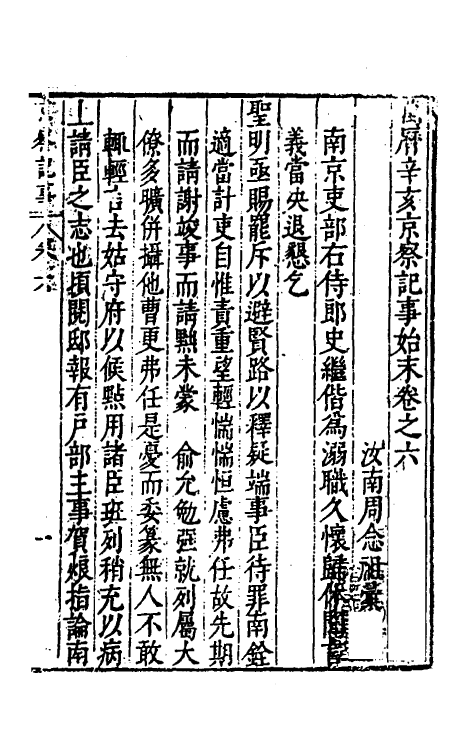 萬曆辛亥京察記事始末卷之六
汝南周念祖彙
南京吏部右侍郎史繼偕為溺職久懷歸休
義當央退懇乞
聖明亟賜罷斥以避賢路以釋疑端事臣待罪南銓
適當計吏自惟責重望輕惴惴恒慮弗任故先期
而請謝竣事而請黜未蒙 俞允勉强就列屬大
僚多曠併攝他曹更弗任是憂而委篆無人不敢
輒輕言去姑守府以候點用諸臣班列稍充以病
上請臣之志也頃閱邸報有戶部主事賀烺指論南
京察記事 卷六